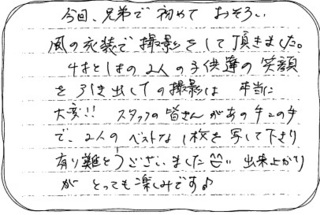 今回、兄弟で初めて おそろい
風の衣装で撮影をして頂きました。
4才と1才の2人の子供達の笑顔
を引き出しての撮影は 本当に
大変!! スタッフの皆さんがあの手この手
で、2人の ベストな1枚を写して下さり
有り難とうございました 出来上がり
が とっても楽しみです♪